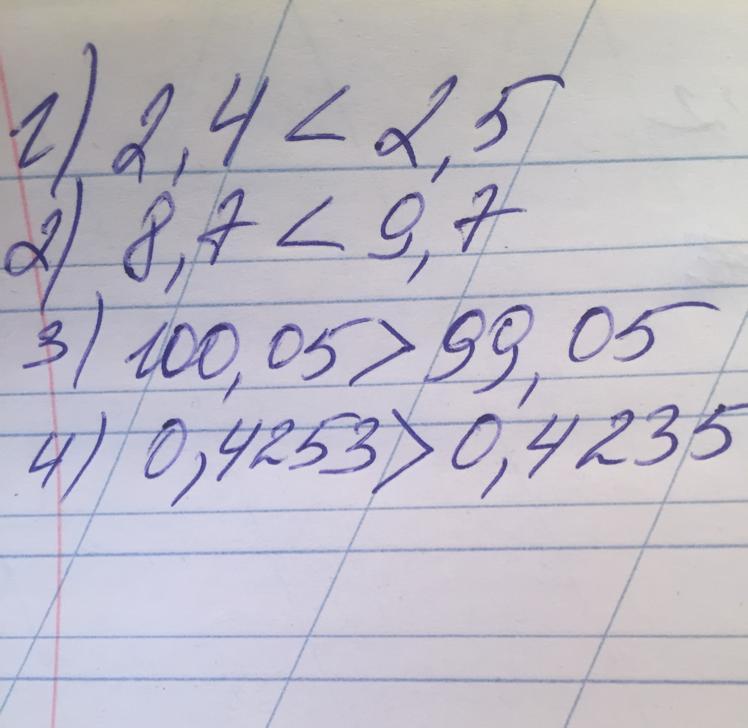 1) 2,4 < 2,5
2) 8,7 < 9,7
3) 100,05 > 99,05
4) 0,4253 > 0,4235